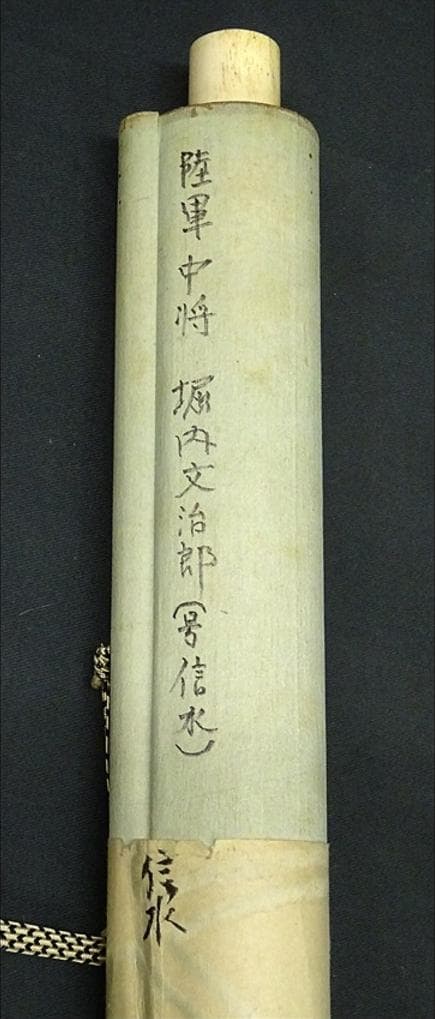 陸軍中将 堀内文治郎(号信水)
信水